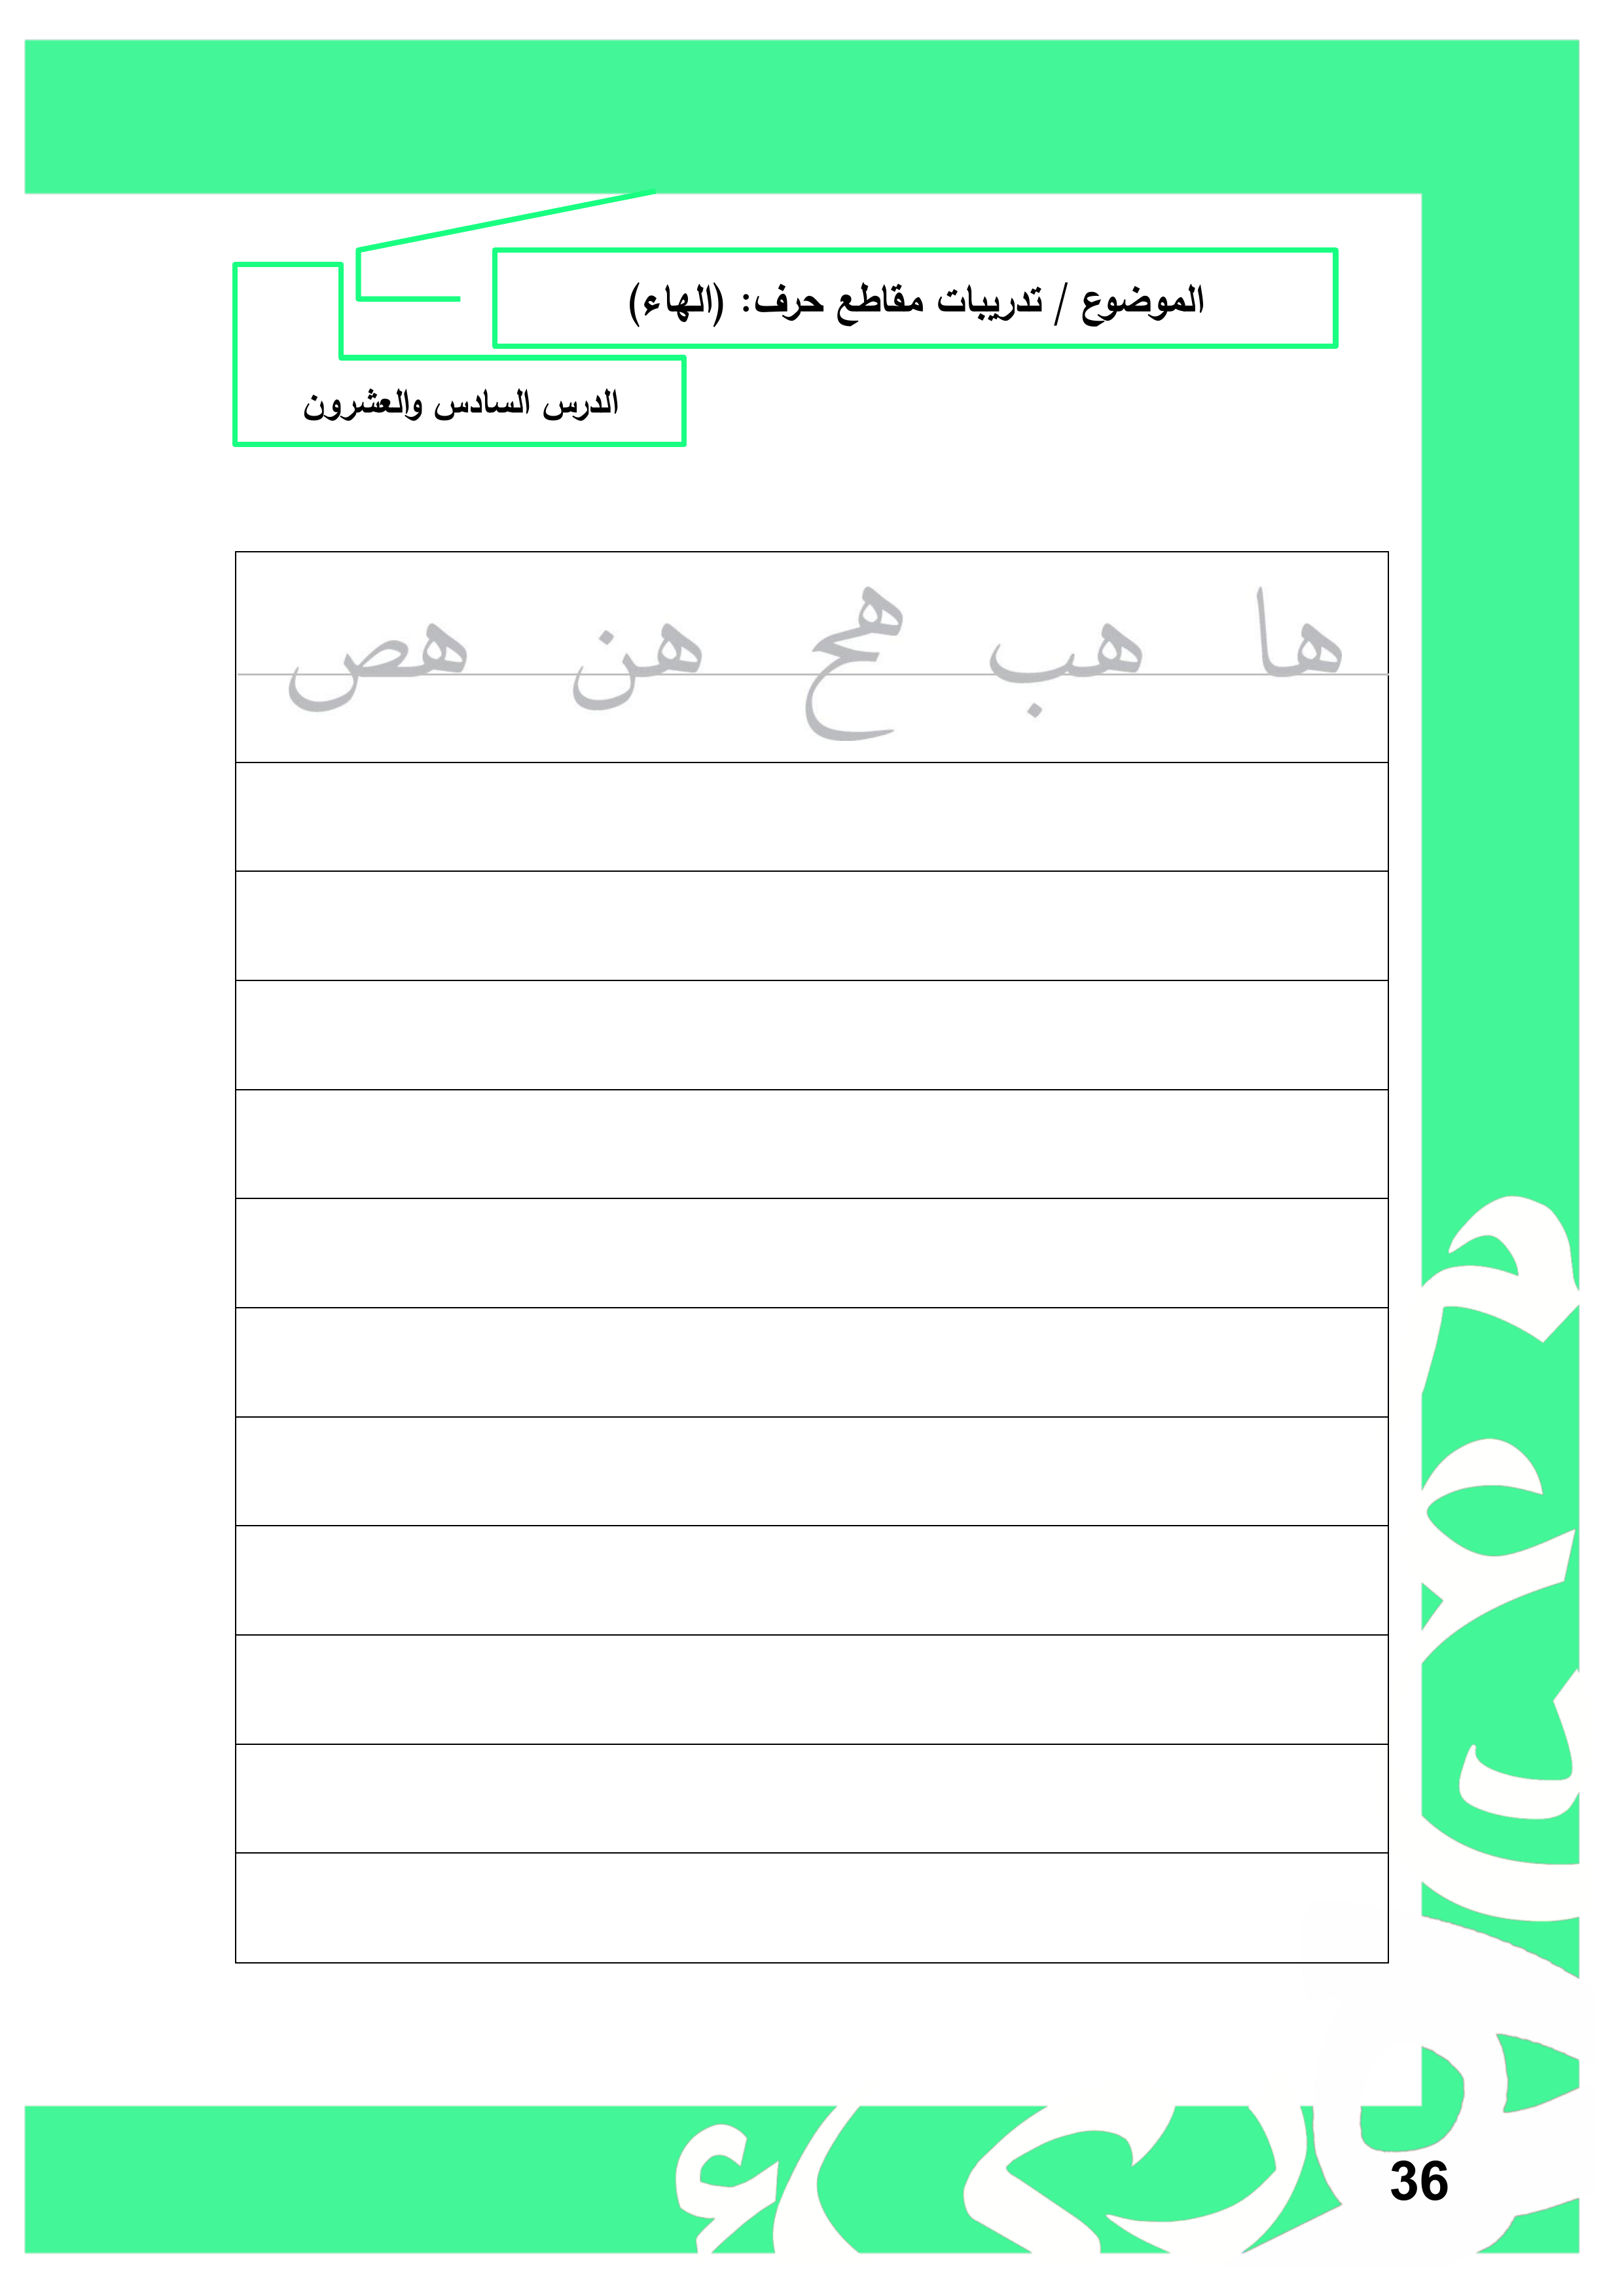 الموضوع / تدريبات مقاطع حرف: (الهاء)
الدرس السادس والعشرون
ها هب هح هن هص
36